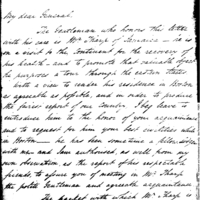 My dear General.
The Gentleman who honors this letter
with his care is Mr Tharp of Jamaica
a visit to the Continent for the recovery of
his health – and to promote that valuable object
he purposes a tour through the eastern States
with a view to render his residence in Boston
as agreeable as possible, and in order to produce
the fairest report of our Country I beg leave to
introduce him to the honor of your acquaintance
and to request for him your best civilities while
in Boston – he has been sometime a
with me and I am authorised, as well from my
own observation as the report of his respectable
friends to assure you of meeting in Mr Tharp
the polite Gentleman and agreeable acquaintance
The packet with which Mr Tharp is